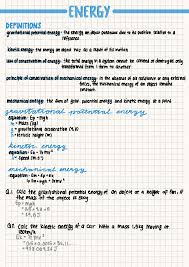 ENERGY
DEFINITIONS
gravitational potential energy - the energy an object possesses due to its position relative to a
reference
kinetic energy - the energy an object has as a result of its motion
law of conservation of energy - the total energy in a system cannot be created or destroyed only
transformed from 1 form to another
principle of conservation of mechanical energy - in the absence of air resistance or any external
forces, the mechanical energy of an object remains
constant
mechanical energy - the sum of grav. potential energy and kinetic energy at a point
gravitational potential energy
equation: Ep = mgh
m = mass (kg)
g = gravitational acceleration (9,8)
h = vertical height (m)
kinetic energy
equation: Ek = ½mv²
v = speed (m.s⁻¹)
mechanical energy
equation: Em = Ep + Ek
= mgh + ½mv²
Q.1 Calc the gravitational potential energy of an object at a height of 5m if
the mass of the object is 2kg
Ep = mgh
Q.2 Calc the kinetic energy of a car with a mass moving at
Ek = ½mv²